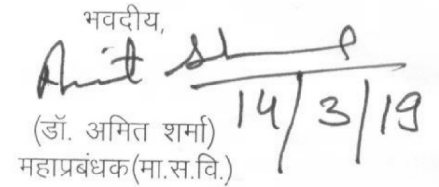 भवदीय,
Amit Sh
14/3/19
(डॉ. अमित शर्मा)
महाप्रबंधक(मा.स.वि.)